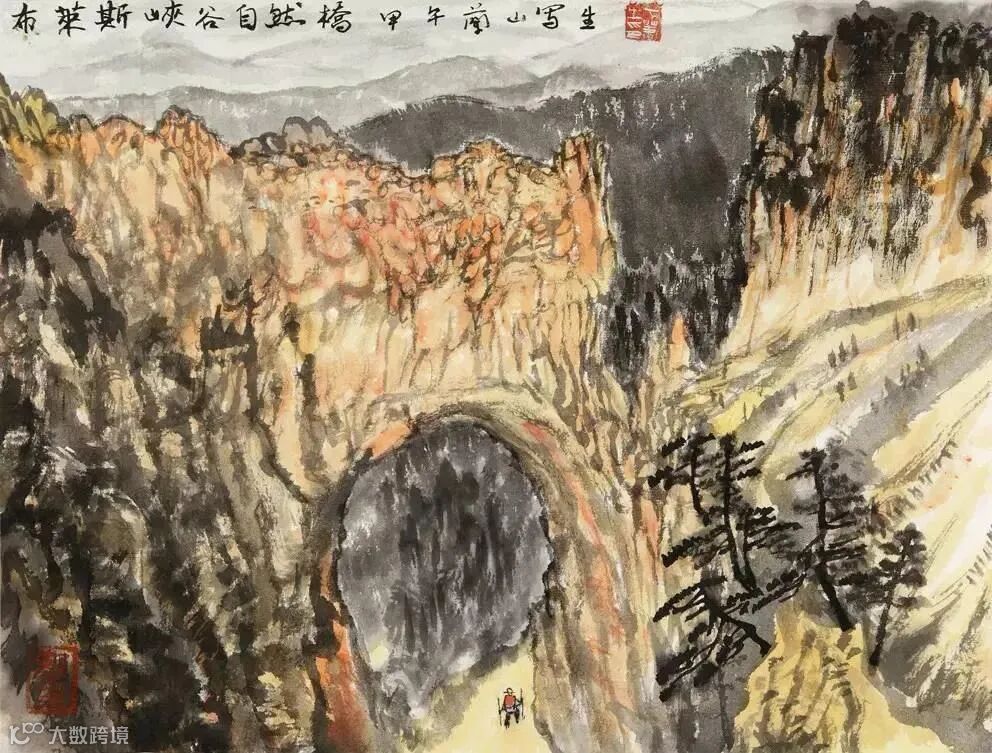 布萊斯峽谷自然橋 甲午蘭山写生
大数跨境